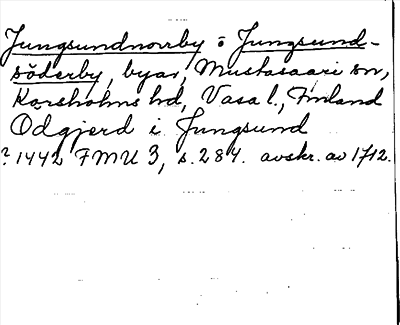 Jungsundnorrby o Jungsund-
söderby, byar, Mustasaari sn,
Korsholms hd, Vasa l., Finland
Odgjerd i Jungsund
? 1442 FMU 3, s. 284. avskr. av 1712.